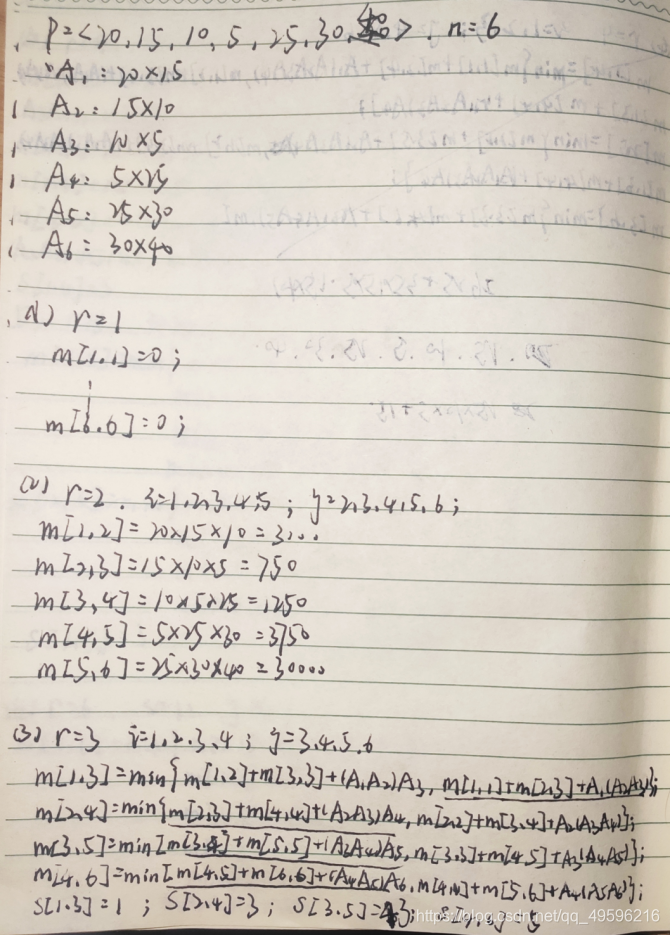 P=<20,15,10,5,25,30, > n=6
A₁: 20×15
A₂: 15×10
A₃: 10×5
A₄: 5×25
A₅: 25×30
A₆: 30×40
(1) r=1
m[1,1]=0;
m[6,6]=0;
(2) r=2. i=1,2,3,4,5; j=2,3,4,5,6;
m[1,2]=20×15×10=3000
m[2,3]=15×10×5=750
m[3,4]=10×5×25=1250
m[4,5]=5×25×30=3750
m[5,6]=25×30×40=30000
(3) r=3 i=1,2,3,4; j=3,4,5,6
m[1,3]=min{m[1,2]+m[3,3]+(A₁A₂)A₃, m[1,1]+m[2,3]+A₁(A₂A₃)};
m[2,4]=min{m[2,3]+m[4,4]+(A₂A₃)A₄, m[2,2]+m[3,4]+A₂(A₃A₄)};
m[3,5]=min[m[3,4]+m[5,5]+(A₃A₄)A₅, m[3,3]+m[4,5]+A₃(A₄A₅)};
m[4,6]=min[m[4,5]+m[6,6]+(A₄A₅)A₆, m[4,4]+m[5,6]+A₄(A₅A₆)};
S[1,3]=1; S[2,4]=3; S[3,5]=
https://blog.csdn.net/qq_49596216